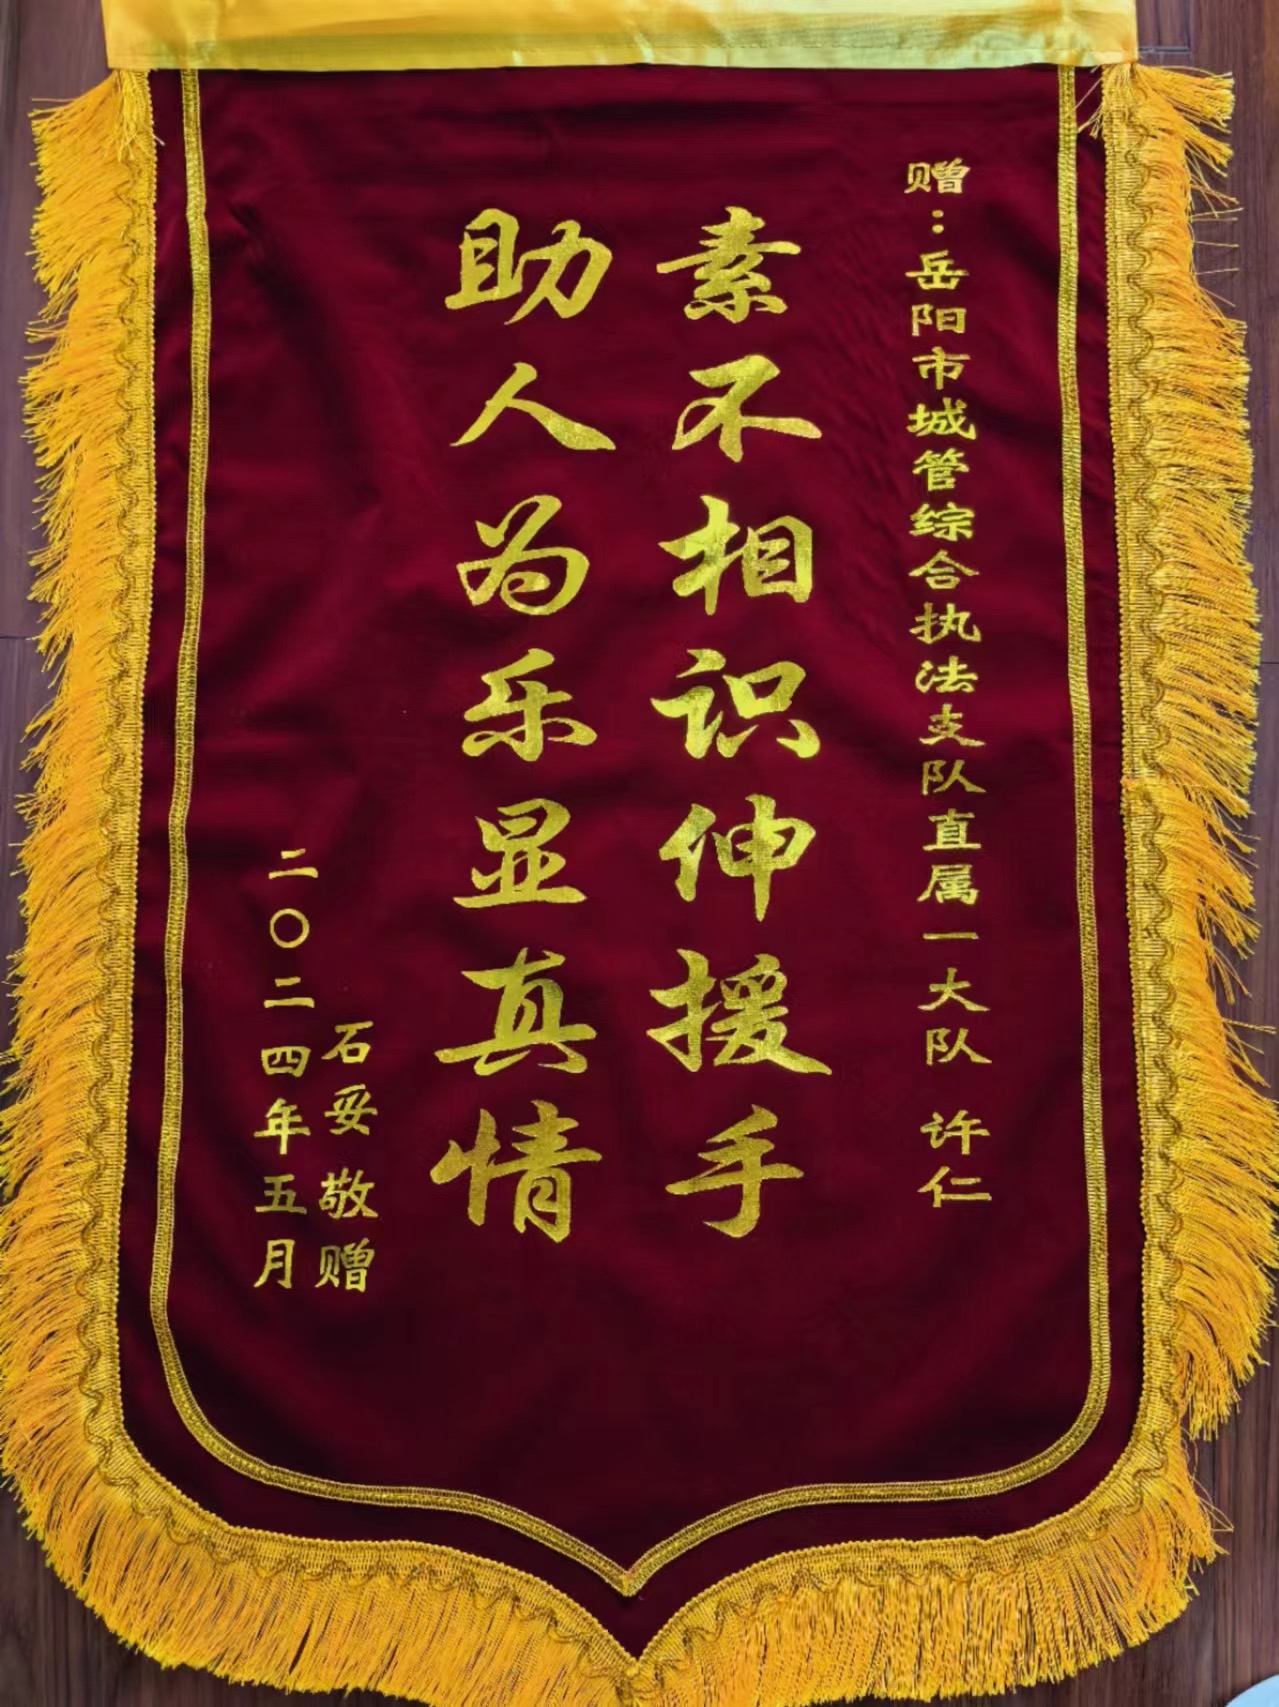 赠：岳阳市城管综合执法支队直属一大队 许仁
素不相识伸援手
助人为乐显真情
石妥敬赠
二〇二四年五月